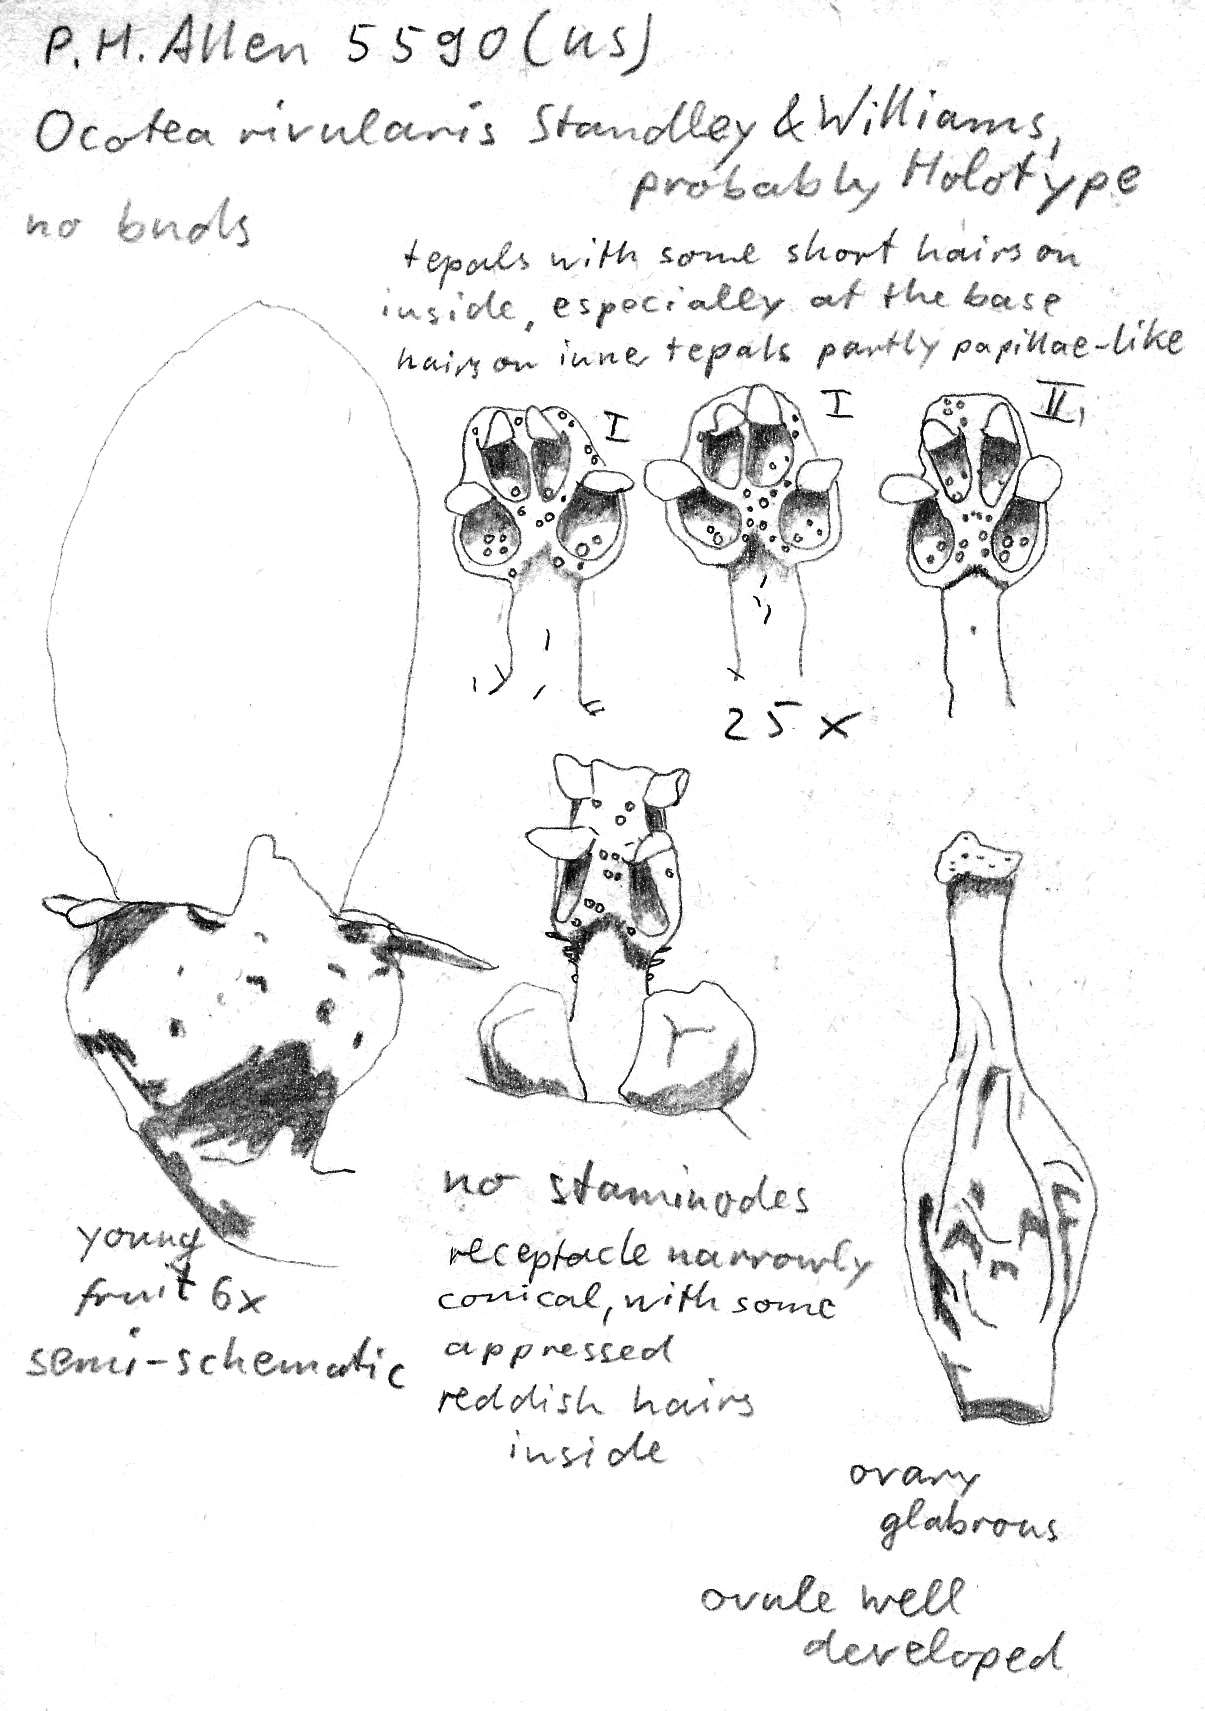 P.H. Allen 5590 (US)
Ocotea rivularis Standley & Williams,
probably Holotype
no buds
tepals with some short hairs on
inside, especially at the base
hairs on inner tepals partly papillae-like
I
I
II,
25 x
no staminodes
receptacle narrowly
conical, with some
appressed
reddish hairs
inside
young
fruit 6x
semi-schematic
ovary
glabrous
ovule well
developed